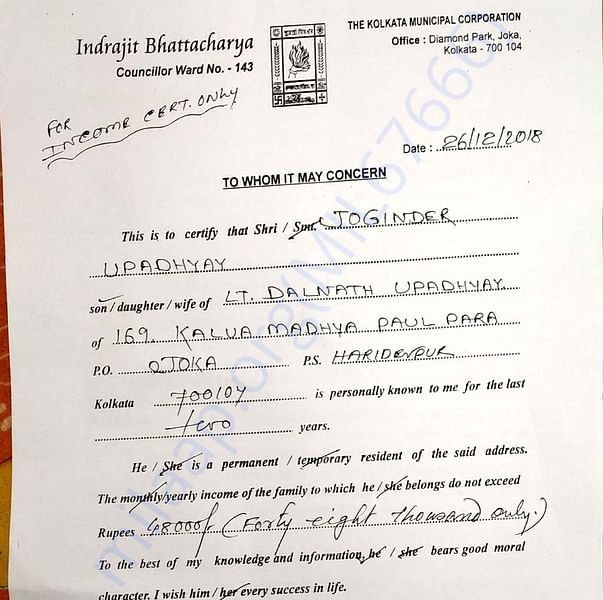 Indrajit Bhattacharya
Councillor Ward No. - 143
THE KOLKATA MUNICIPAL CORPORATION
Office : Diamond Park, Joka,
Kolkata - 700 104
FOR
INCOME CERT. ONLY
Date : 26/12/2018
TO WHOM IT MAY CONCERN
This is to certify that Shri / Smt. JOGINDER
UPADHYAY
son / daughter / wife of LT. DALNATH UPADHYAY
of 169, KALUA MADHYA PAUL PARA
P.O. JOKA P.S. HARIDEVPUR
Kolkata 700104 is personally known to me for the last
two years.
He / She is a permanent / temporary resident of the said address.
The monthly/yearly income of the family to which he / she belongs do not exceed
Rupees 48000/- (Forty eight thousand only.)
To the best of my knowledge and information, he / she bears good moral
character. I wish him / her every success in life.